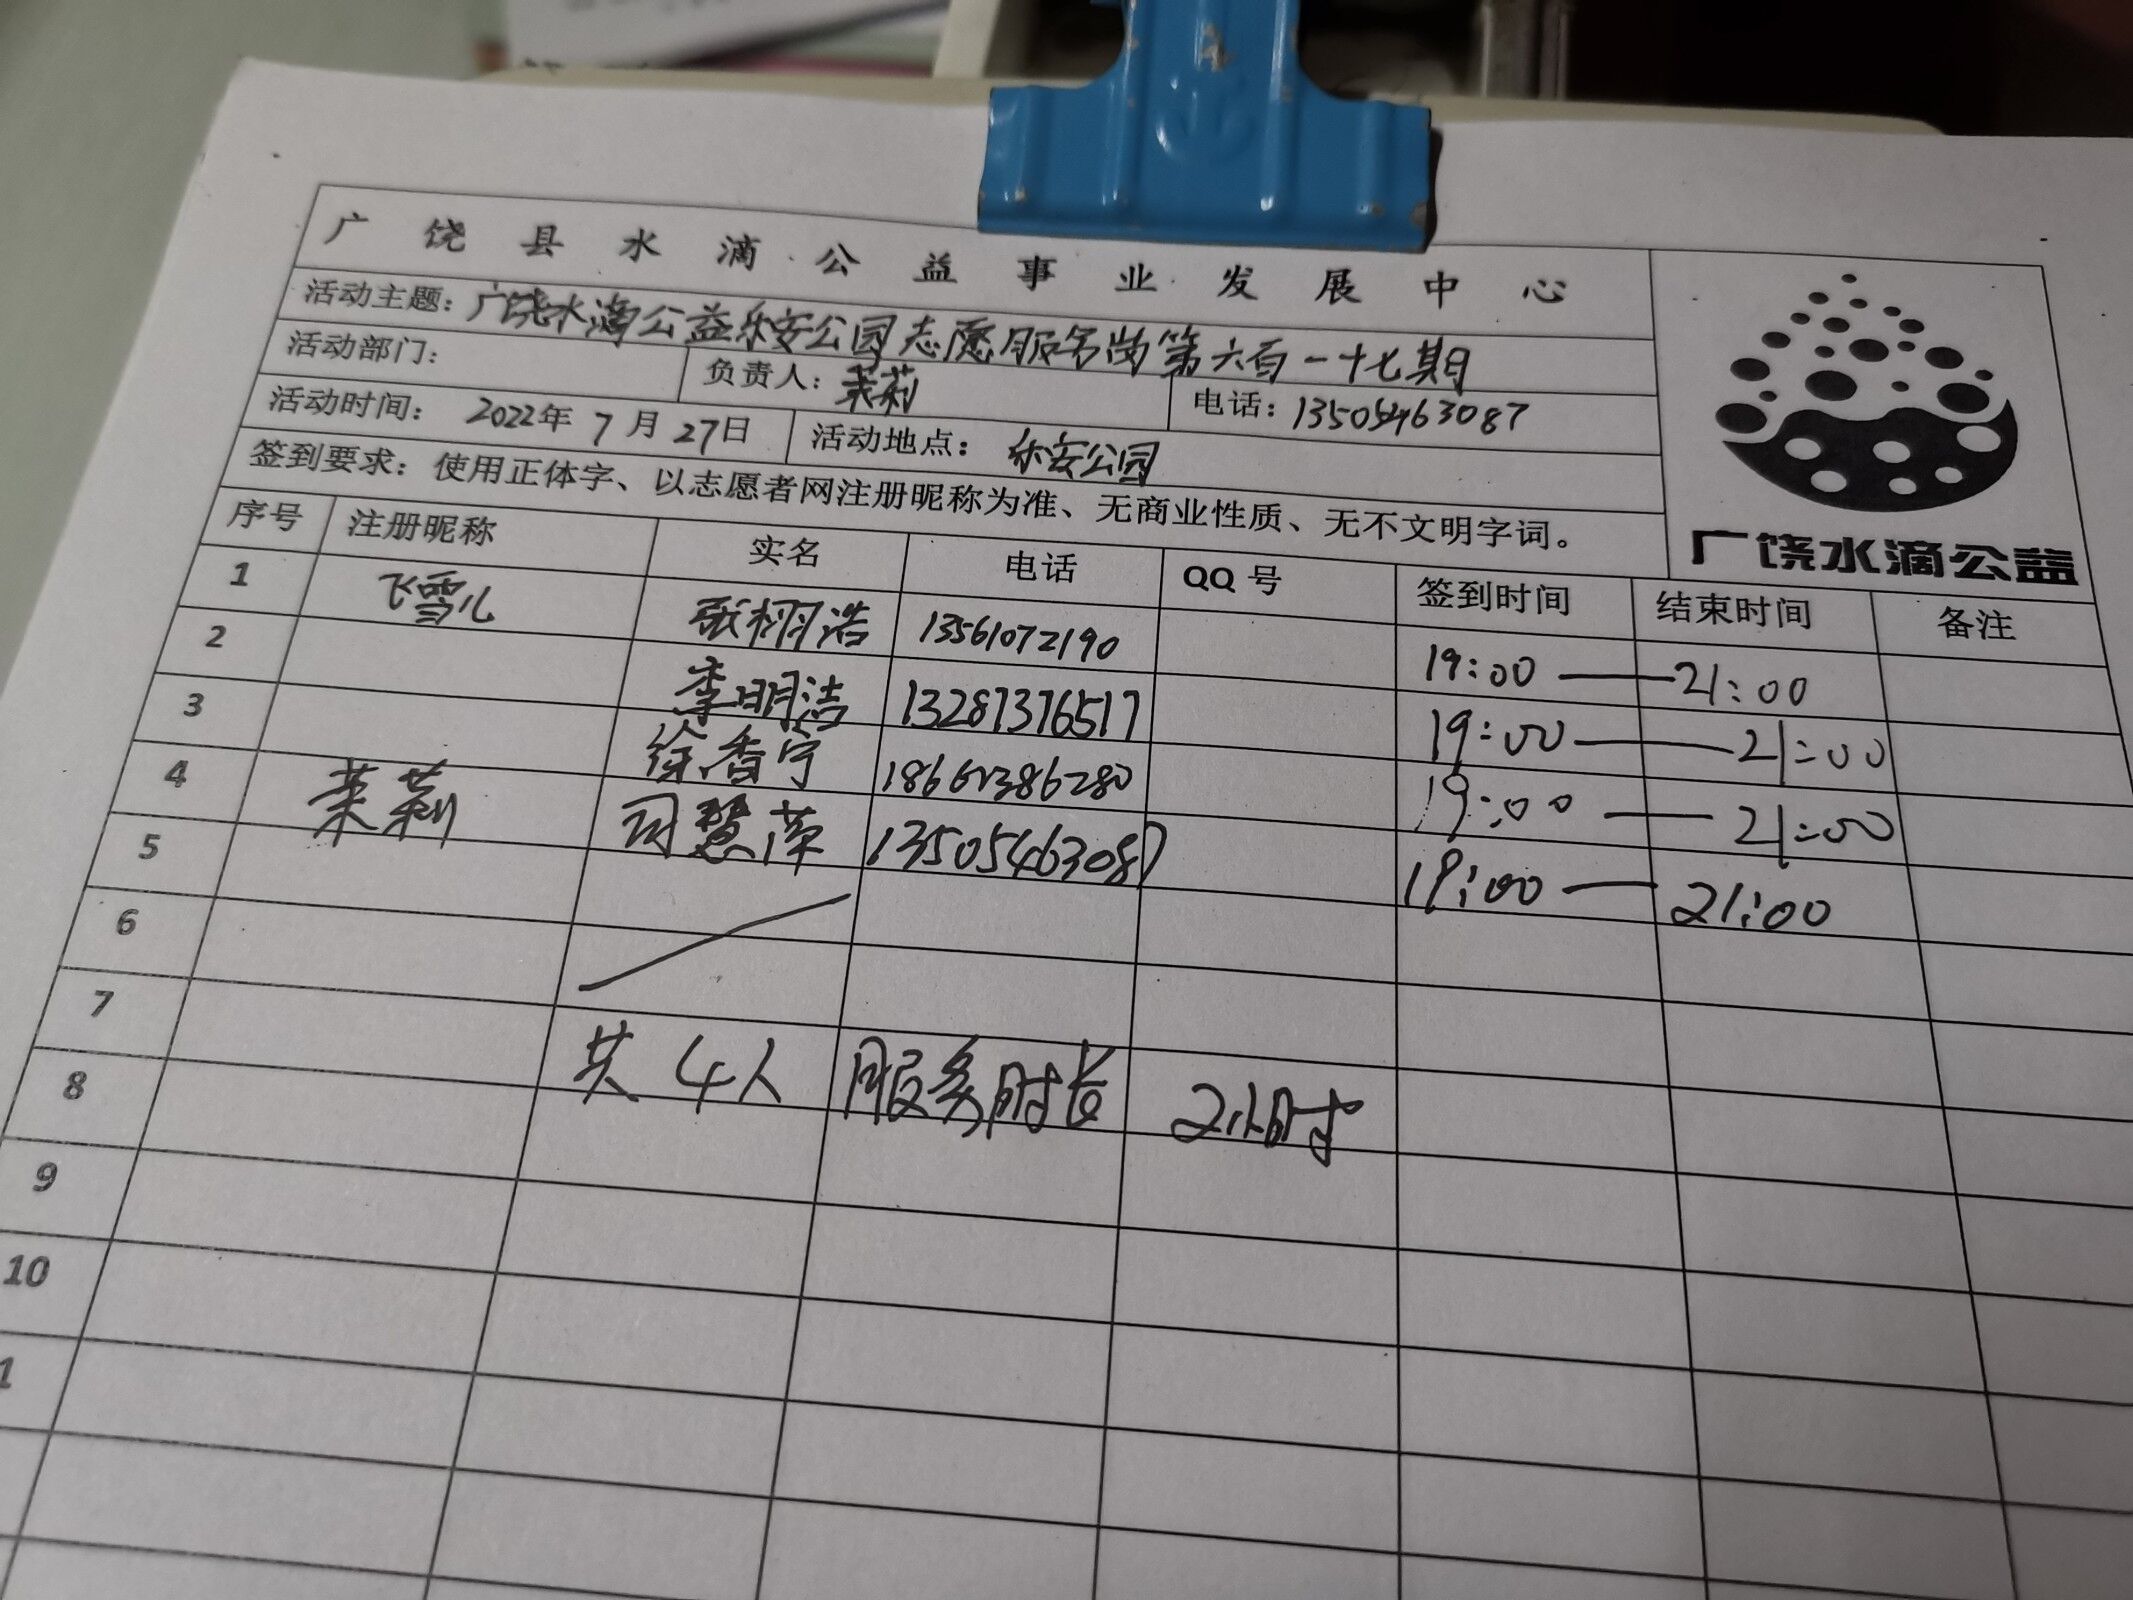 广饶县水滴公益事业发展中心
活动主题：广饶水滴公益乐安公园志愿服务岗第六百一十七期
活动部门： 负责人：茉莉 电话：13505463087
活动时间： 2022年7月27日 活动地点： 乐安公园
签到要求：使用正体字、以志愿者网注册昵称为准、无商业性质、无不文明字词。
广饶水滴公益
序号 注册昵称 实名 电话 QQ号 签到时间 结束时间 备注
1 飞雪儿 张栩浩 13561072190 19:00——21:00
2 李明洁 13287376517 19:00——21:00
3 徐香宁 19:00——21:00
4 茉莉 司慧萍 13505463087 19:00——21:00
5
6
7 共4人 服务时长 2小时
8
9
10
1